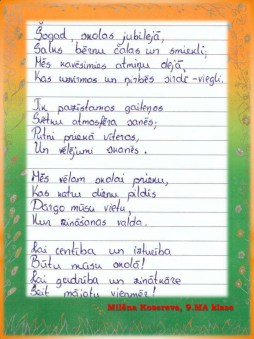 Šogad, skolas jubilejā,
Salks bērnu čalas un smiekli;
Mēs kavēsimies atmiņu dejā,
Kas uzvirmos un sirdī viegli.
Tik pazīstamos gaiteņos
Svētku atmosfēra sanēs;
Putni priekā vīteros,
Un vēlējumi skanēs.
Mēs vēlam skolai prieku,
Kas katru dienu pildīs
Dārgo mūsu vietu,
Kur zināšanas valda.
Lai centība un izturība
Būtu mūsu skolā!
Lai gudrība un zinātkāre
Šeit mājotu vienmēr!
Milēna Kosareva, 9.MA klase